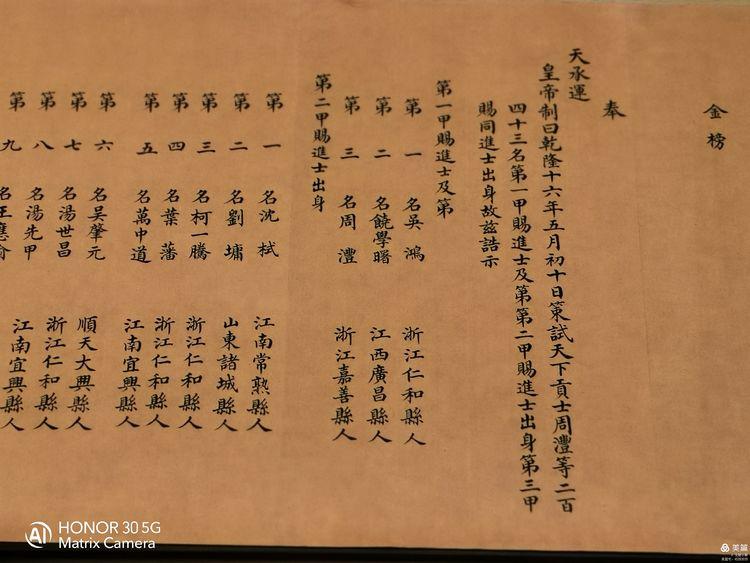 金榜
奉
天承運
皇帝制曰乾隆十六年五月初十日策試天下貢士周灃等二百
四十三名第一甲賜進士及第第二甲賜進士出身第三甲
賜同進士出身故茲誥示
第一甲賜進士及第
第一名吳鴻 浙江仁和縣人
第二名饒學曙 江西廣昌縣人
第三名周灃 浙江嘉善縣人
第二甲賜進士出身
第一名沈栻 江南常熟縣人
第二名劉墉 山東諸城縣人
第三名柯一騰 浙江仁和縣人
第四名葉藩 浙江仁和縣人
第五名萬中道 江南宜興縣人
第六名吳肇元 順天大興縣人
第七名湯世昌 浙江仁和縣人
第八名湯先甲 江南宜興縣人
第九名王應
HONOR 30 5G
Matrix Camera
美篇